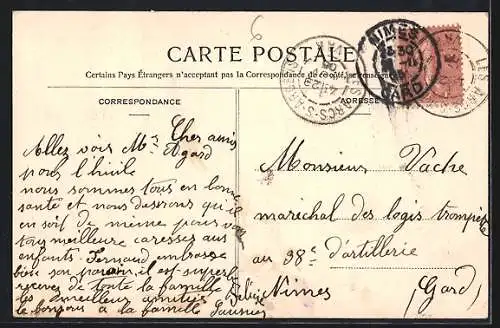 6
CARTE POSTALE
Certains Pays Étrangers n'acceptent pas la Correspondance de ce côté
CORRESPONDANCE
ADRESSE
NIMES
GARD
LES ARCS-S-ARGENS
VAR
Chers amis
Allez voir Mr Agard
pour l'huile
nous sommes tous en bonne
santé et nous desirons qu'il
en soit de même pour vous
meilleure caresses aux
enfants. Fernand embrasse
bien son parrain, il est superbe
recevez de toute la famille
les meilleur amitiés
le bonjour à la famille
Monsieur Vache
marechal des logis trompette
au 38e d'artillerie
Nimes
(Gard)